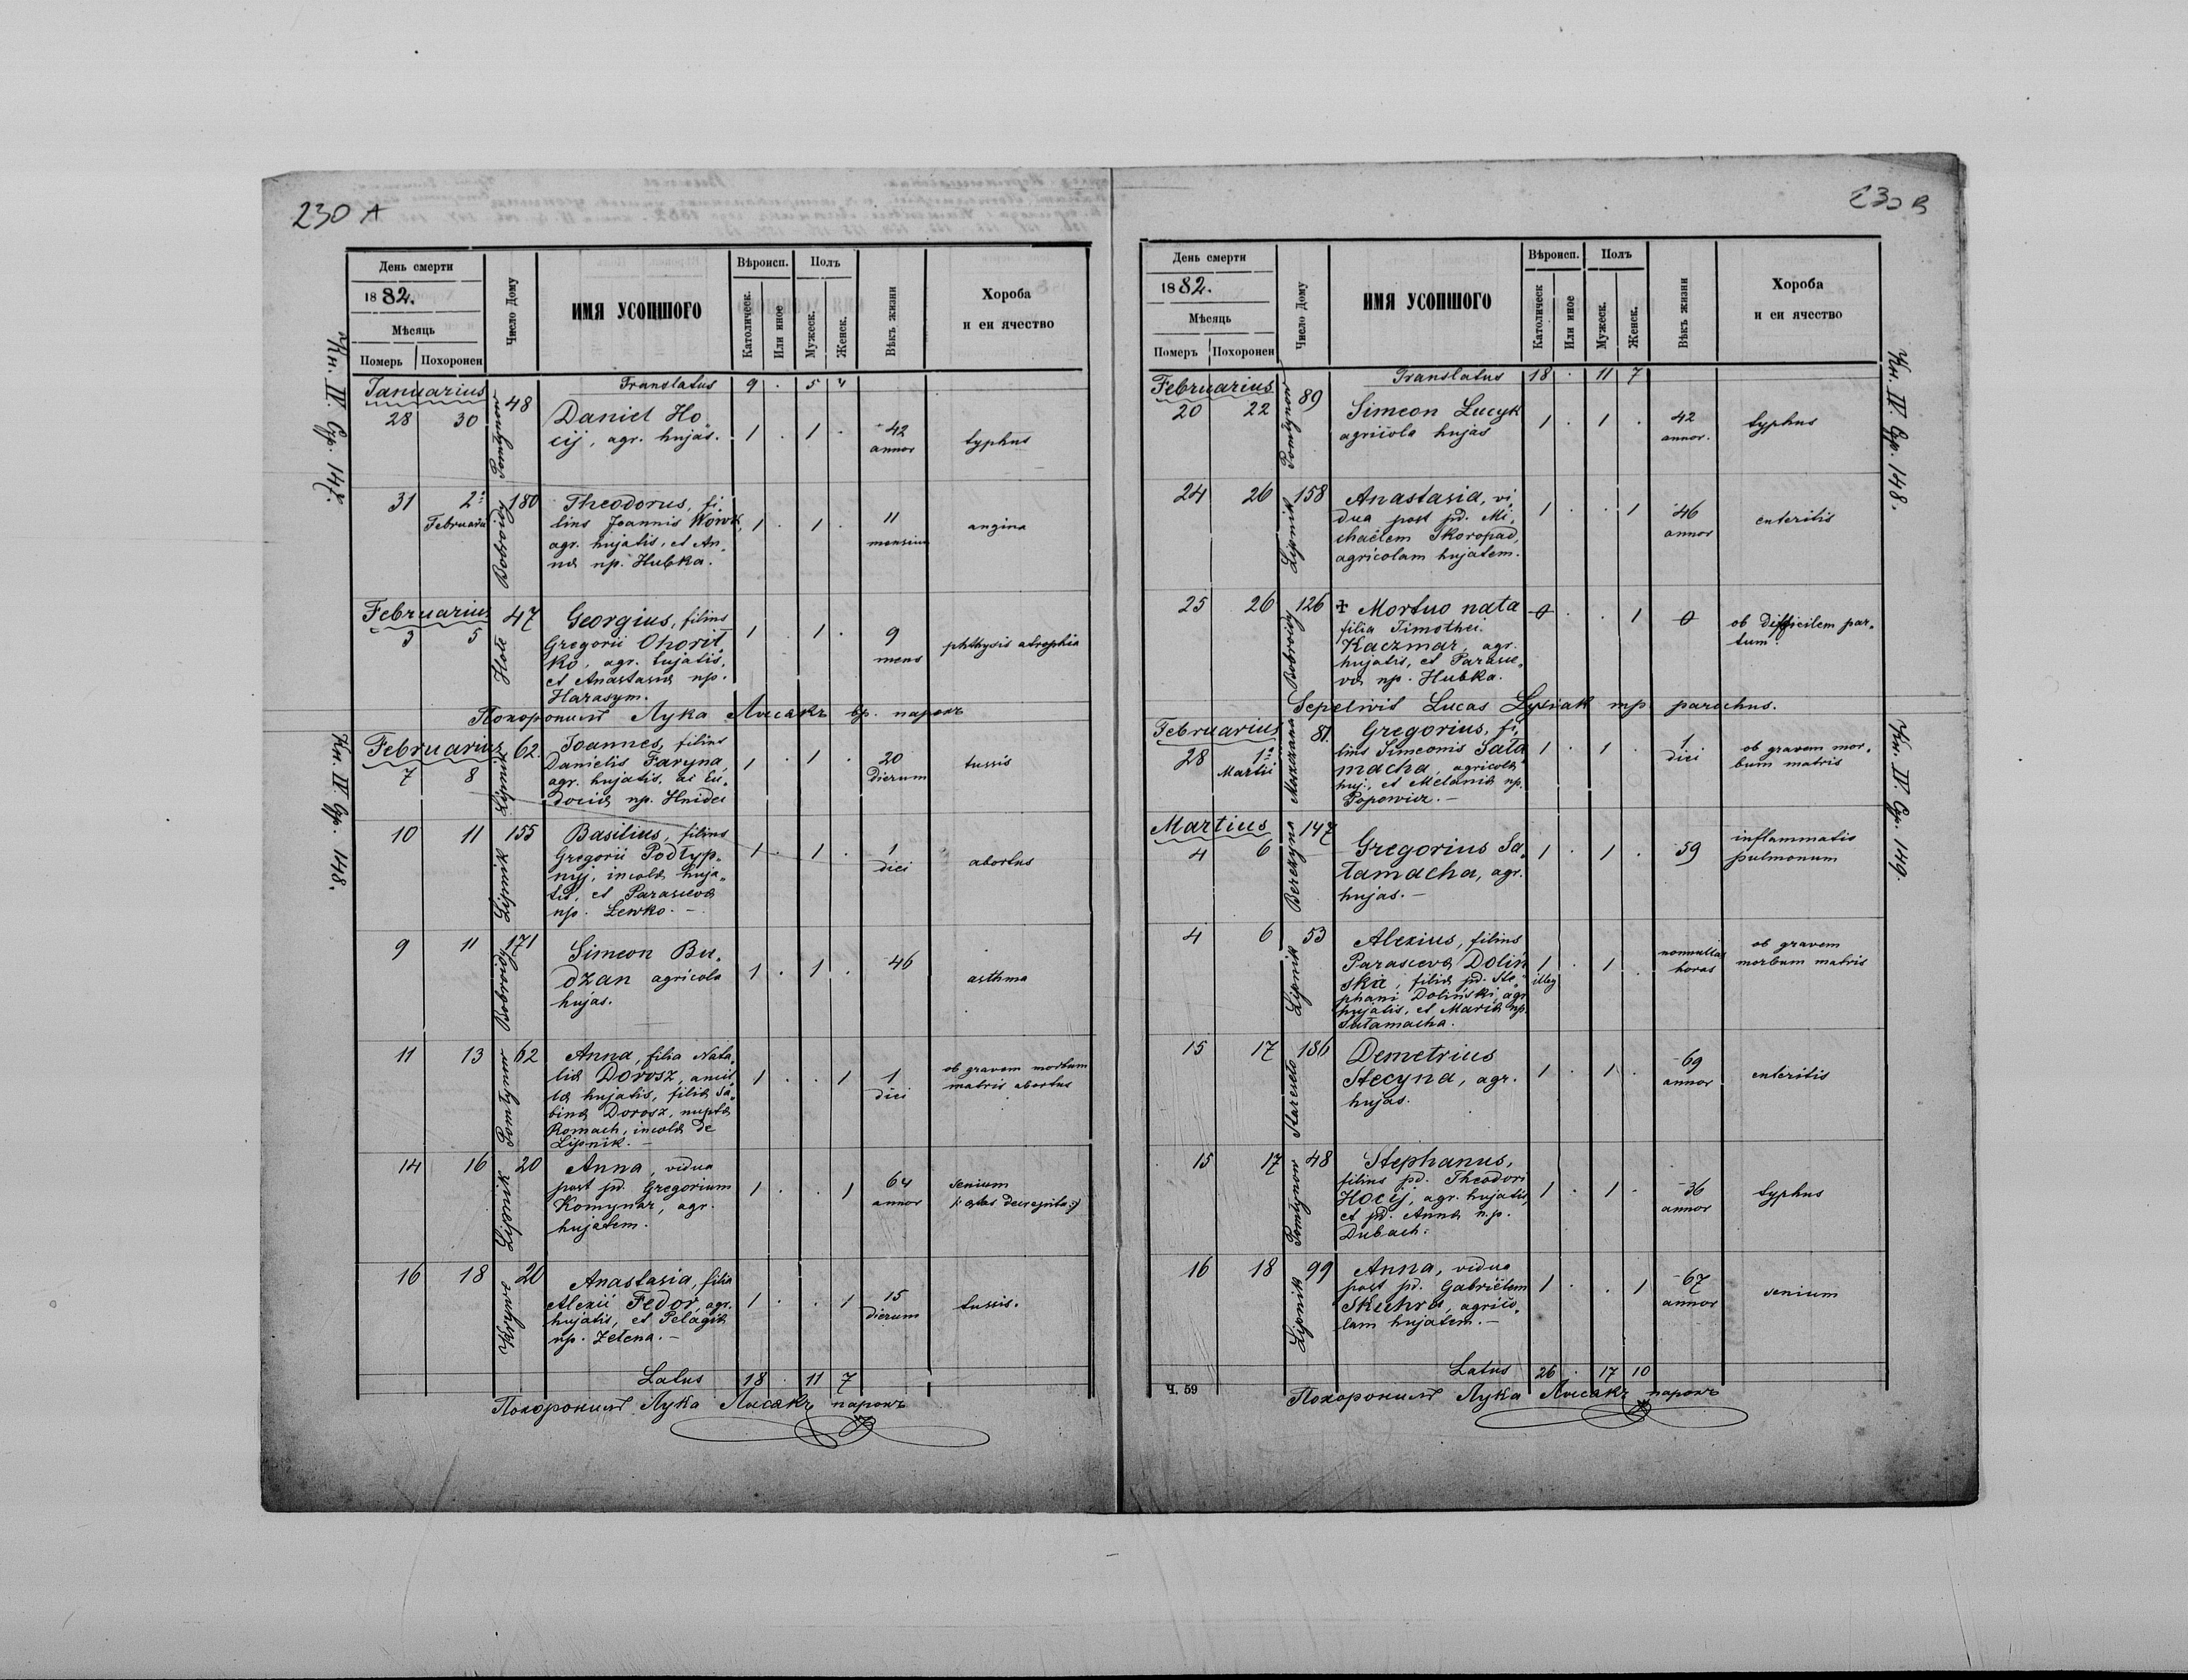 230 A
День смерти
1882.
Мѣсяць
Померъ Похоронен
Число Дому
ИМЯ УСОПШОГО
Вѣроисп.
Католическ.
Или иное
Полъ
Мужеск.
Женск.
Вѣкъ жизни
Хороба
и еи ячество
Кн. IV. Стр. 147.
Translatus 9 . 5 4
Januarius
28 30 Pomłynow 48
Daniel Ho
cij, agr. hujas. 1 . 1 . 42
annor typhus
31 2º
Februarii Bobroidy 180
Theodorus, fi,
lius Joannis Wowk,
agr. hujatis, et An,
næ np. Hubka.
1 . 1 . 11
mensium angina
Februarius
3 5 Hołe 47
Georgius, filius
Gregorii Ohorit,
ko, agr. hujatis,
et Anastasiæ np.
Harasym.
1 . 1 . 9
mens phthysis atrophia
Похоронилъ Лука Лисакъ вр. парохъ
Кн. IV Стр. 148.
Februarius
7 8 Lipnik 62.
Joannes, filius
Danielis Faryna,
agr. hujatis, ac Eu,
dociæ np. Hnidec
1 . 1 . 20
dierum tussis
10 11 Lipnik 155
Basilius, filius
Gregorii Podłyp,
nyj, incolæ huja,
tis, et Parascevæ
np. Lewko. —
1 . 1 . 1
diei abortus
9 11 Bobroidy 171
Simeon Bu,
dzan agricola
hujas.
1 . 1 . 46
asthma
11 13 Pomłynow 62
Anna, filia Nata,
liæ Dorosz, ancil,
læ hujatis, filiæ Sa,
binæ Dorosz, nuptæ
Romach, incolæ de
Lipnik. —
1 . . 1 1
diei
ob gravem morbum
matris abortus
14 16 Lipnik 20
Anna, vidua
post pd. Gregorium
Komynar, agr.
hujatem.
1 . . 1 64
annor
senium
(: ætas decrepita :)
16 18 Krywe 20
Anastasia, filia
Alexii Fedor, agr.
hujatis, et Pelagiæ
np. Zełena. —
1 . . 1 15
dierum tussis.
Latus 18 . 11 7
Похоронилъ Лука Лисакъ парохъ
230 B
День смерти
1882.
Мѣсяць
Померъ Похоронен
Число Дому
ИМЯ УСОПШОГО
Вѣроисп.
Католическ
Или иное
Полъ
Мужеск.
Женск.
Вѣкъ жизни
Хороба
и еи ячество
Кн. IV. Стр. 148.
Translatus 18 . 11 7
Februarius
20 22 Pomłynow 89
Simeon Lucyk
agricola hujas
1 . 1 . 42
annor. typhus
24 26 Lipnik 158
Anastasia, vi,
dua post pd. Mi,
chaelem Skoropad,
agricolam hujatem.
1 . . 1 46
annor enteritis
25 26 Bobroidy 126
‡ Mortuo nata
filia Timothei
Kaczmar, agr.
hujatis, et Parasce,
væ np. Hubka.
0 . . 1 0
ob difficilem par,
tum.
Sepelivit Lucas Lysiak mp parochus.
Кн. IV. Стр. 149.
Februarius
28 1º
Martii 81.
Gregorius, fi,
lius Simeonis Sała
macha, agricolæ
huj., et Melaniæ np.
Popowicz. —
1 . 1 . 1
diei
ob gravem mor,
bum matris
Martius
4 6 Berezyna 147
Gregorius Sa,
łamacha, agr.
hujas. —
1 . 1 . 59
inflammatio
pulmonum
4 6 Lipnik 53
Alexius, filius
Parascevæ Doliń
skie, filiæ pd. Ste,
phani Doliński, agr
hujatis, et Mariæ np.
Sałamacha.
1
illeg . 1 . nonnullas
horas
ob gravem
morbum matris
15 17 Staresioło 186
Demetrius
Stecyna, agr.
hujas.
1 . 1 . 69
annor enteritis
15 17 Pomłynow 48
Stephanus,
filius pd. Theodori
Hocij, agr. hujatis,
et pd. Annæ n.p.
Dubach.
1 . 1 . 36
annor typhus
16 18 Lipnik 99
Anna, vidua
post pd. Gabrielem
Skuhra, agrico,
lam hujatem. —
1 . . 1 67
annor senium
Latus 26 . 17 10
Ч. 59
Похоронилъ Лука Лисакъ парохъ